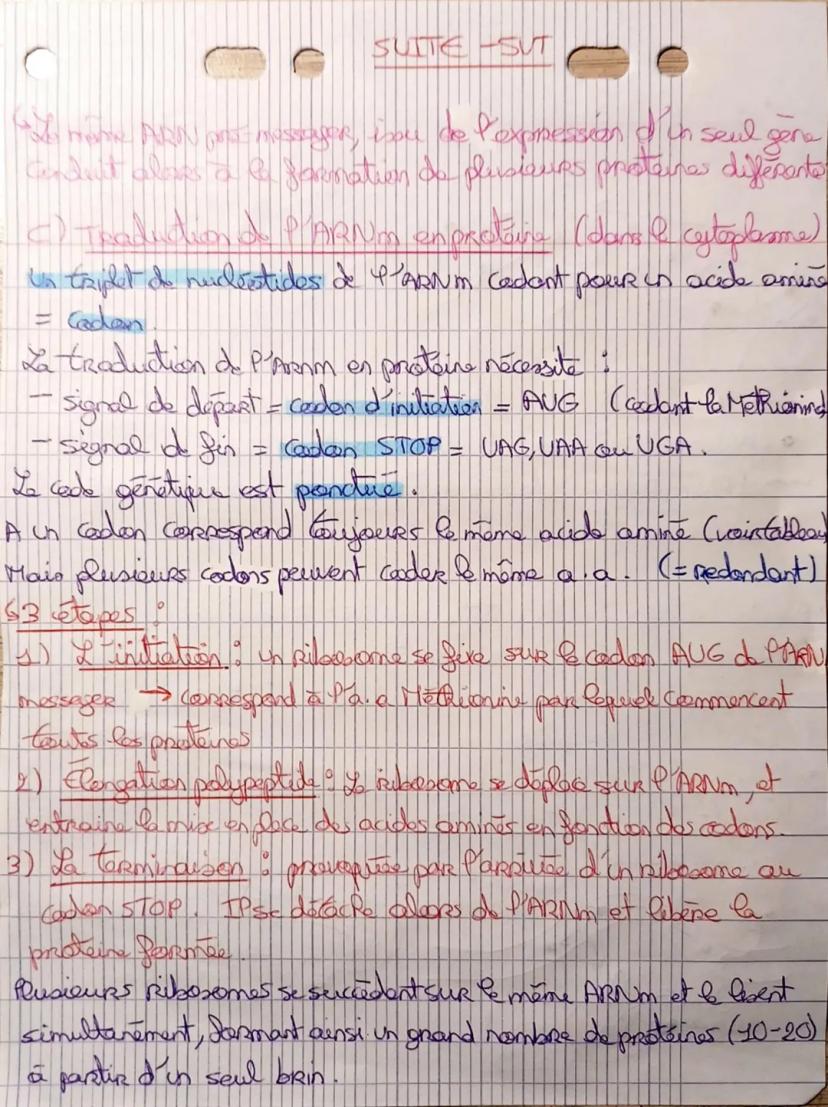 SUITE - SVT
↳ Le même ARN pré-messager, issu de l'expression d'un seul gène
conduit alors à la formation de plusieurs protéines différentes
C) Traduction de l'ARNm en protéine (dans le cytoplasme)
Un triplet de nucléotides de l'ARNm codant pour un acide aminé
= codon.
La traduction de l'Arnm en protéine nécessite :
- signal de départ = codon d'initiation = AUG (codant la Méthionine)
- signal de fin = codon STOP = UAG, UAA ou UGA.
Le code génétique est ponctué.
A un codon correspond toujours le même acide aminé (voir tableau)
Mais plusieurs codons peuvent coder le même a.a. (= redondant)
↳ 3 étapes :
1) L'initiation : un ribosome se fixe sur le codon AUG de l'ARN
messager → correspond à l'a.a Méthionine par lequel commencent
toutes les protéines
2) Élongation polypeptide : Le ribosome se déplace sur l'ARNm, et
entraine la mise en place des acides aminés en fonction des codons.
3) La terminaison : provoquée par l'arrivée d'un ribosome au
codon STOP. Il se détache alors de l'ARNm et libère la
protéine formée.
Plusieurs ribosomes se succèdent sur le même ARNm et le lisent
simultanément, formant ainsi un grand nombre de protéines (10-20)
à partir d'un seul brin.